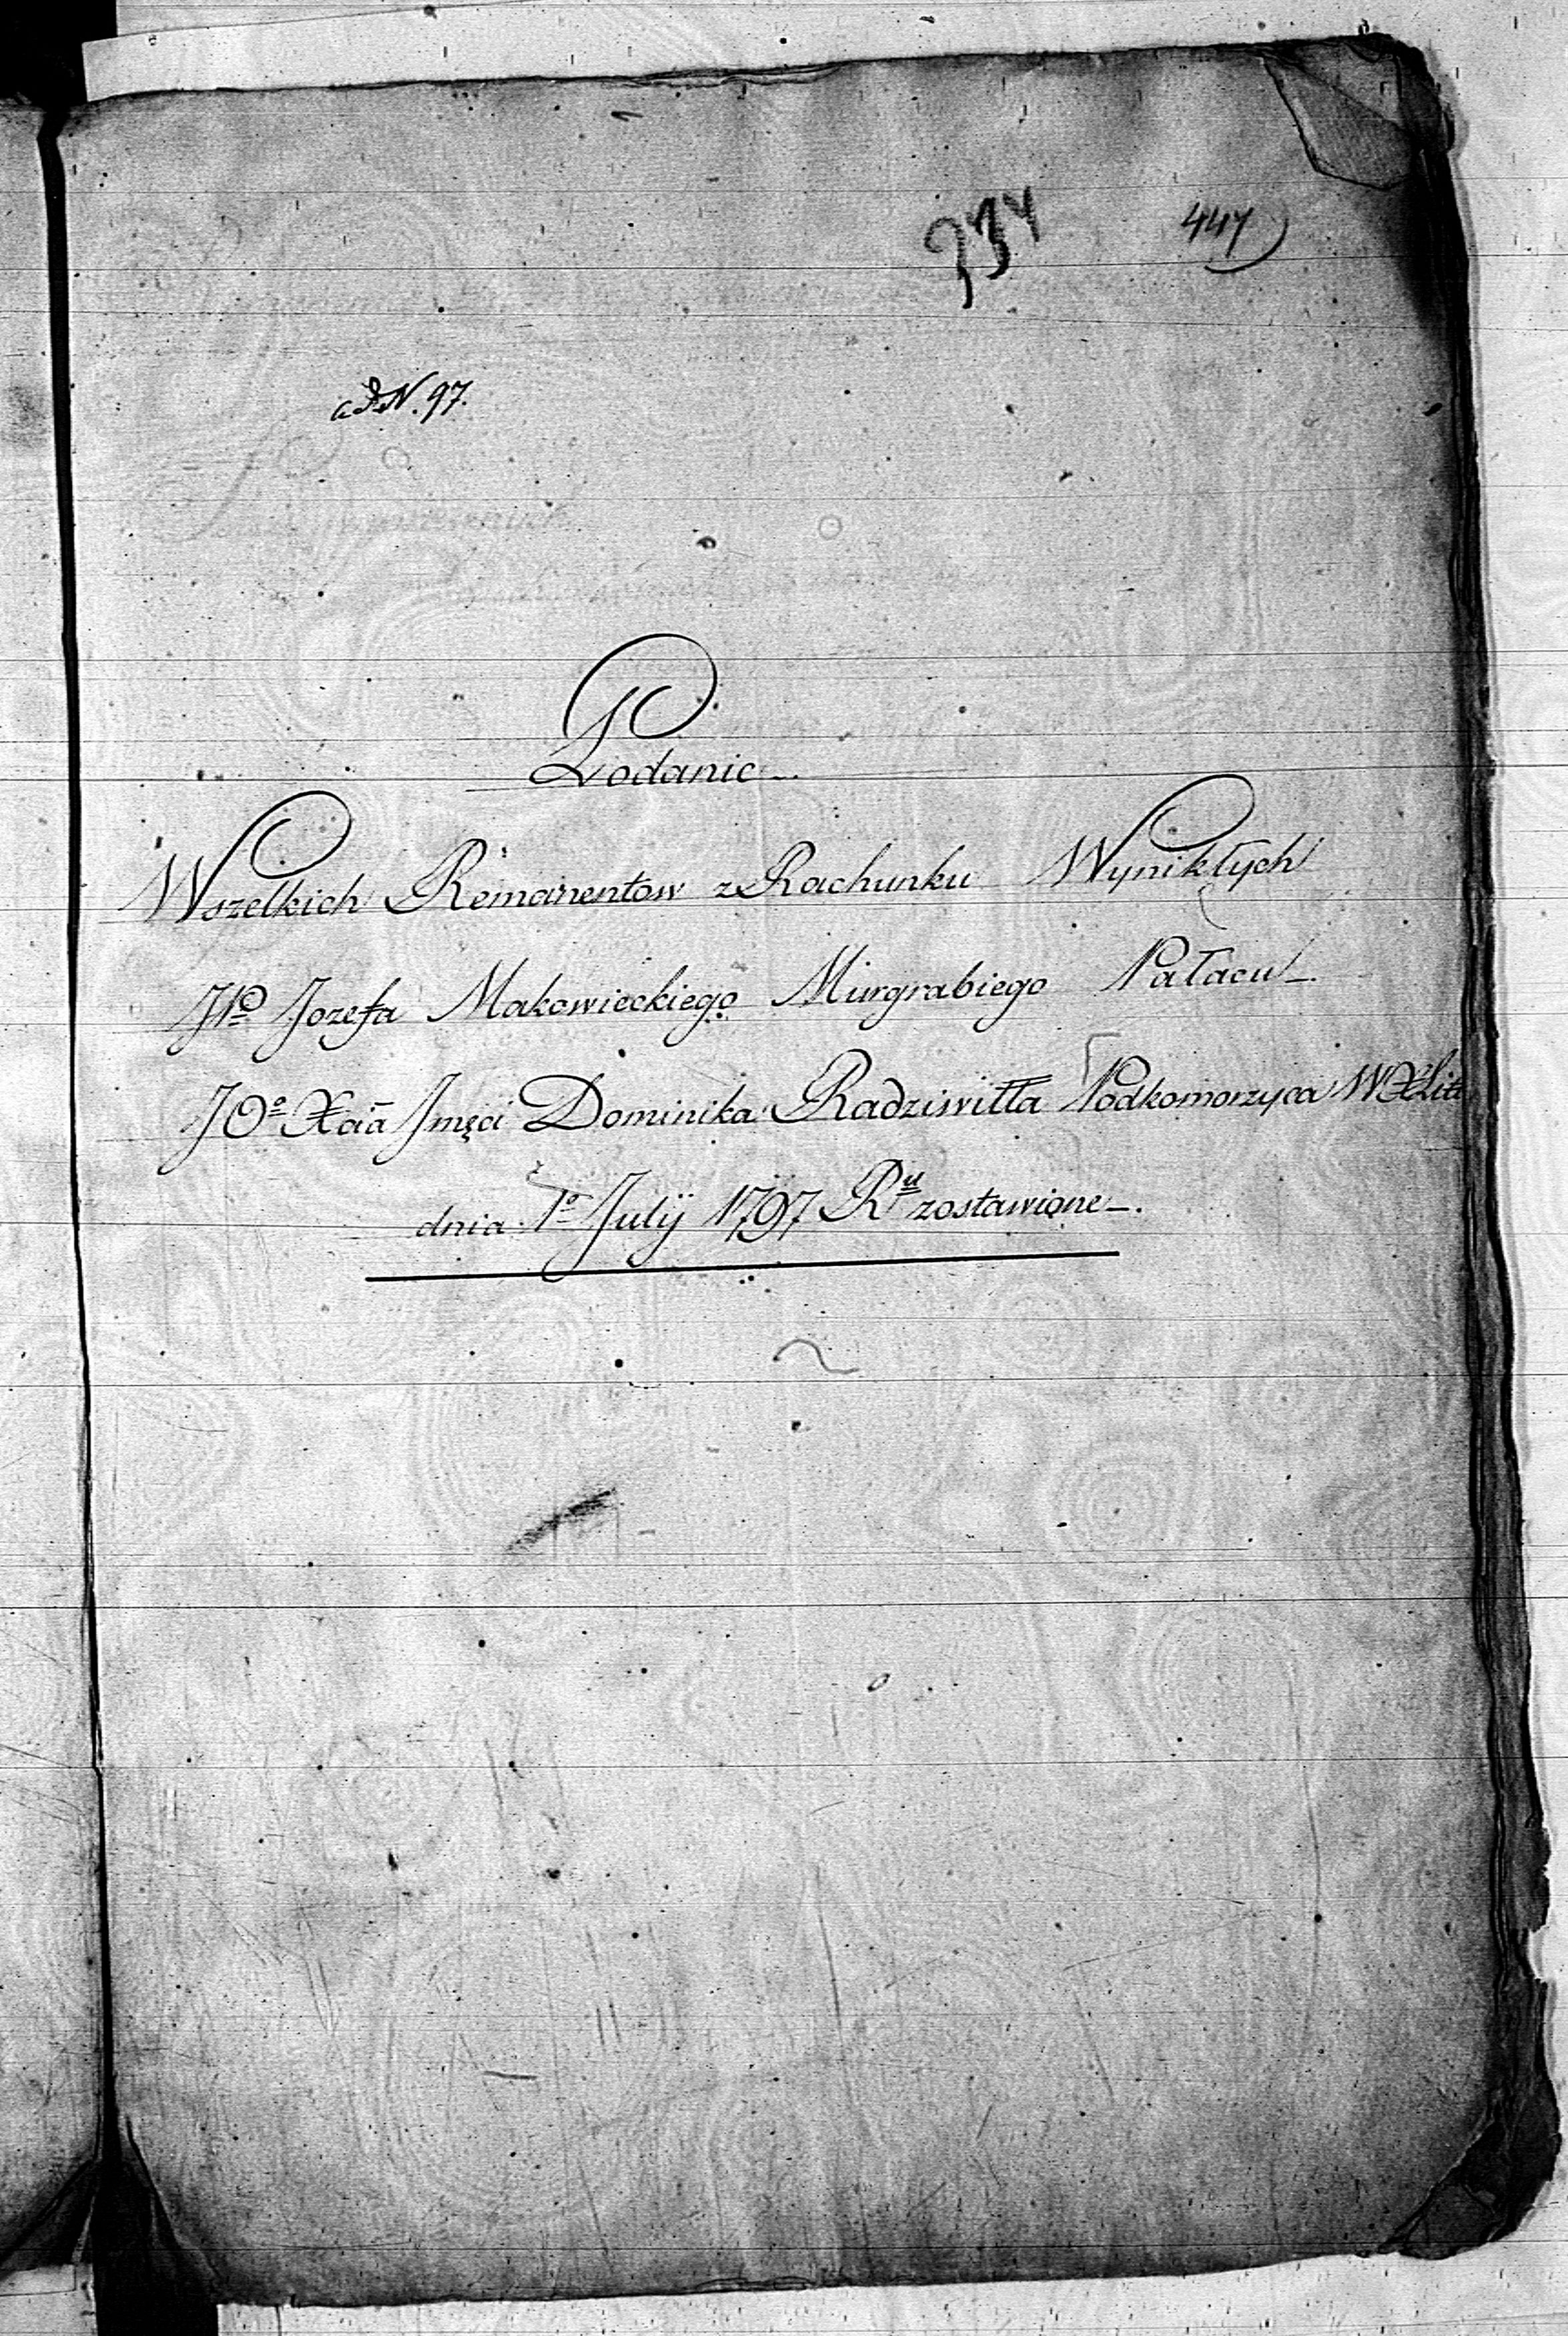 734 447
ad N. 97.
Podanie
Wszelkich Remanentow z Rachunku Wynikłych
JP Jozefa Makowieckiego Murgrabiego Pałacu
JOo Xcia Jmęci Dominika Radziwiłła Podkomorzyca WXLitt
dnia 1o Julij 1797 Ru zostawione